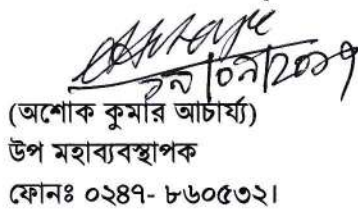 (অশোক কুমার আচার্য্য)
উপ মহাব্যবস্থাপক
ফোনঃ ০২৪৭- ৮৬০৫৩২।